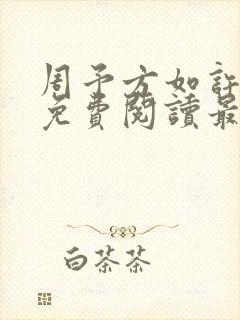 周予方如許
免費閱讀最
白茶茶